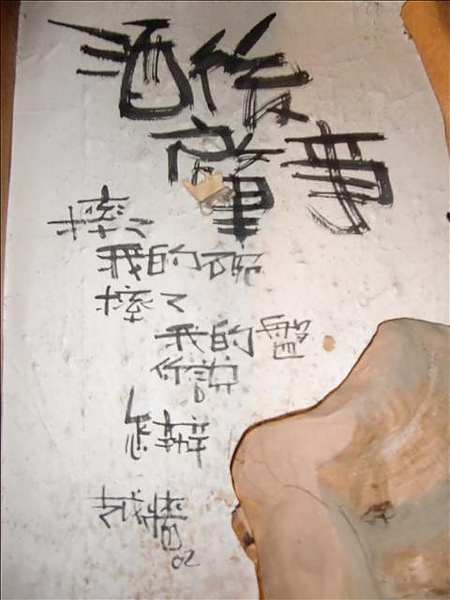 酒後
摔了
我的碗
摔了
我的盤
你說
怎辦
02